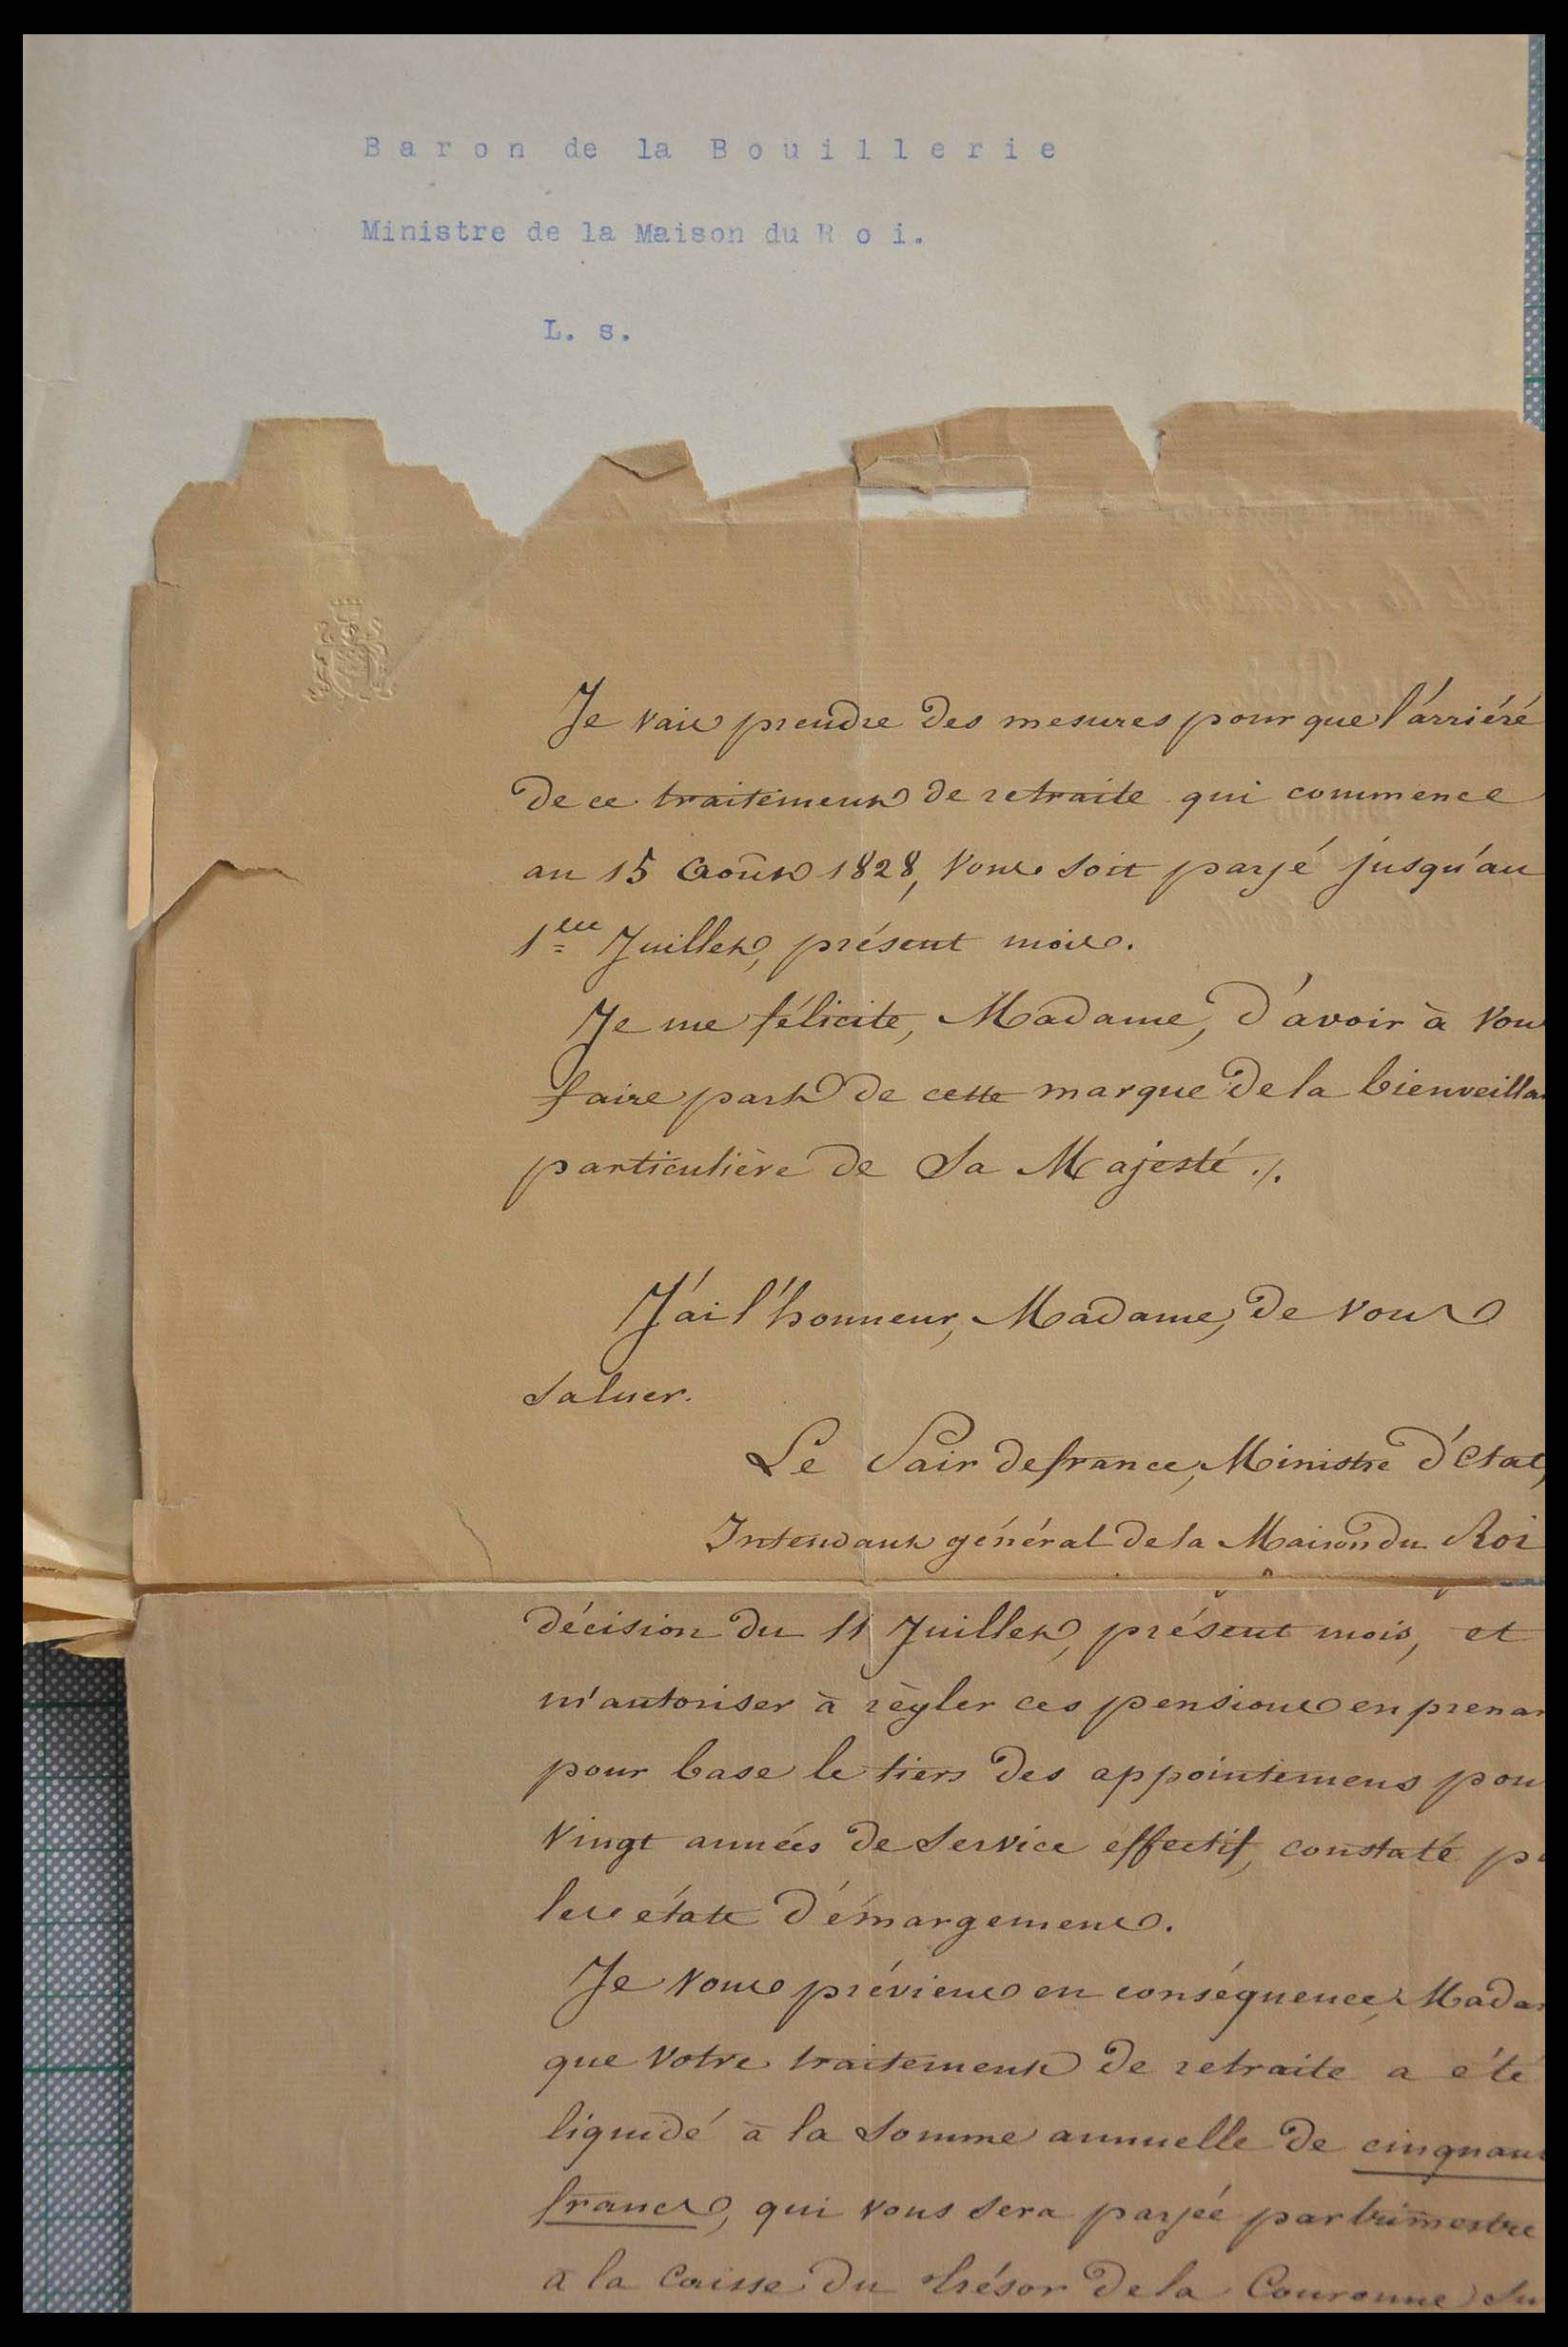 Baron de la Bouillerie
Ministre de la Maison du Roi.
L. s.
Je vais prendre des mesures pour que l'arriéré
de ce traitement de retraite qui commence
au 15 Août 1828, vous soit payé jusqu'au
1er Juillet, présent mois.
Je me félicite, Madame, d'avoir à vou
faire part de cette marque de la bienveilla
particulière de Sa Majesté ./.
J'ai l'honneur, Madame, de vous
saluer.
Le Pair de france, Ministre d'Etat,
Intendant général de la Maison du Roi
décision du 11 Juillet, présent mois, et
m'autoriser à règler ces pensions en prenan
pour base le tiers des appointemens pou
vingt années de service éffectif, constaté pa
les états d'émargemens.
Je vous préviens en conséquence, Madam
que votre traitement de retraite a été
liquidé à la somme annuelle de cinquan
francs, qui vous sera payée par trimestre
à la Caisse du trésor de la Couronne su